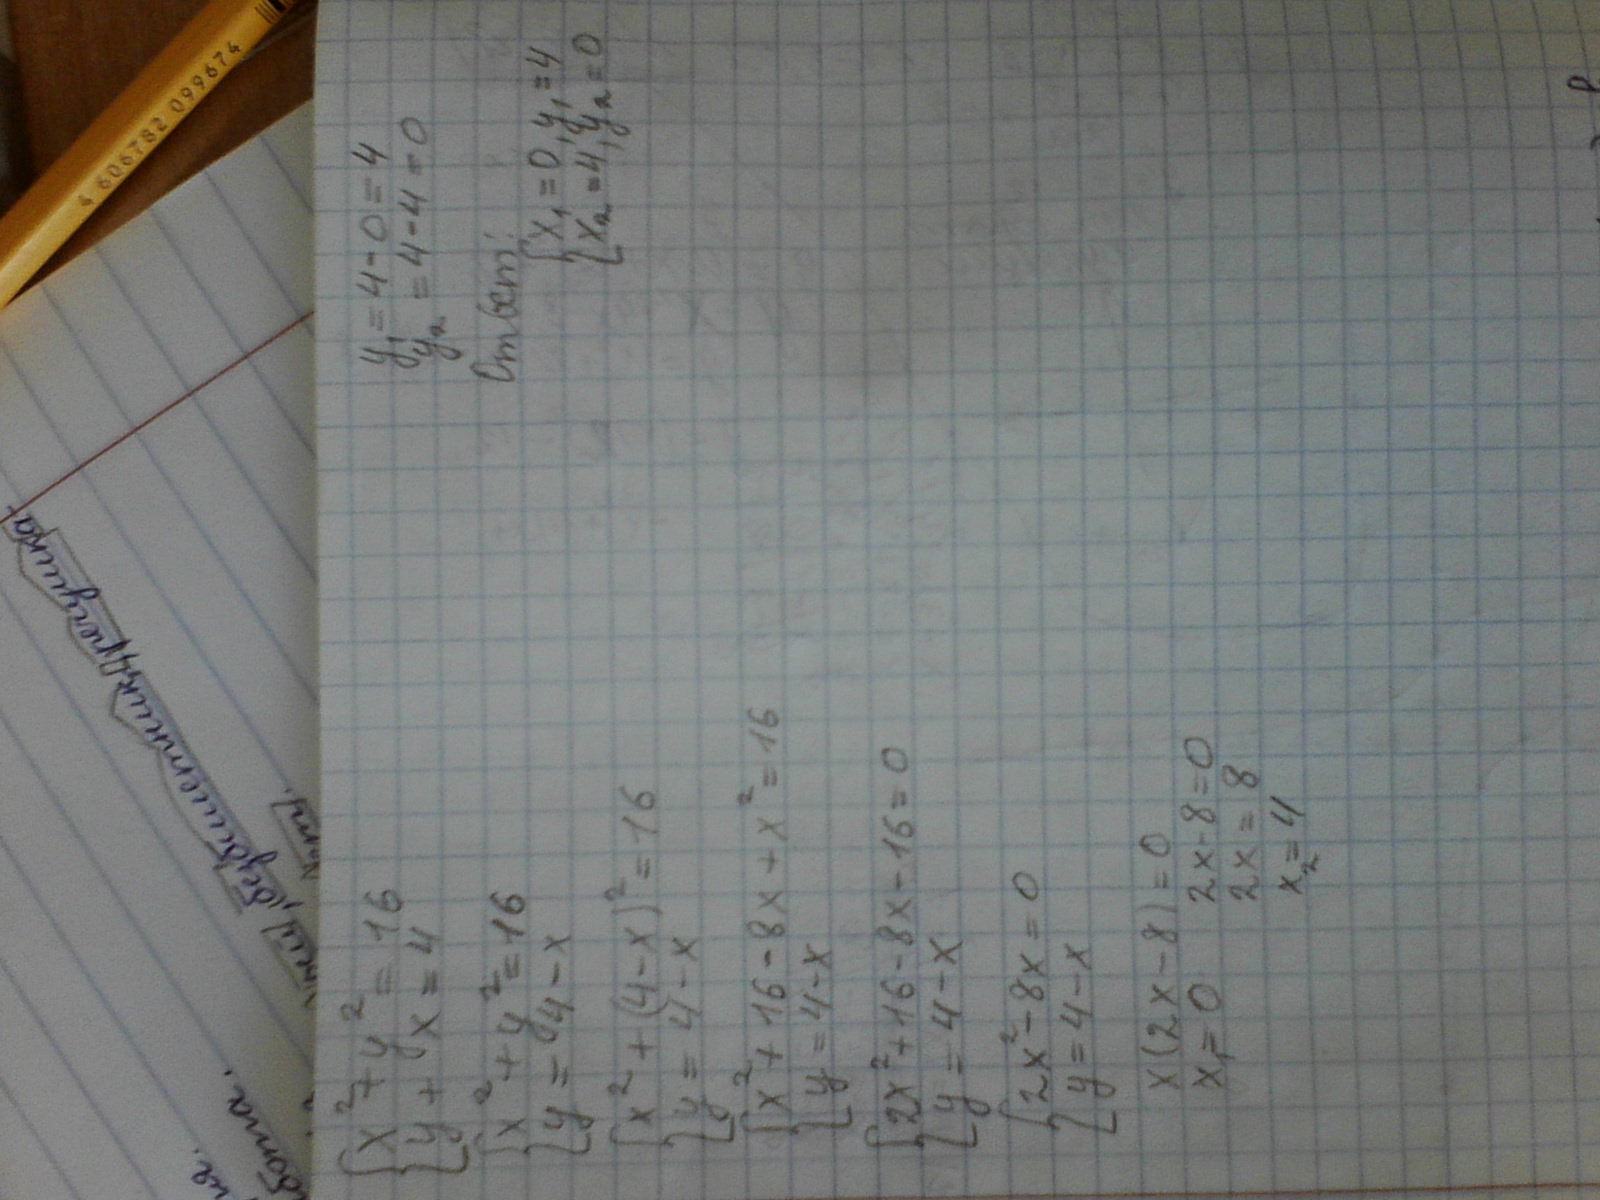 {x²+y²=16
{y+x=4
{x²+y²=16
{y=4-x
{x²+(4-x)²=16
{y=4-x
{x²+16-8x+x²=16
{y=4-x
{2x²+16-8x-16=0
{y=4-x
{2x²-8x=0
{y=4-x
x(2x-8)=0
x₁=0 2x-8=0
2x=8
x₂=4
y₁=4-0=4
y₂=4-4=0
Ответ:
{x₁=0, y₁=4
{x₂=4, y₂=0
4 606782 099674